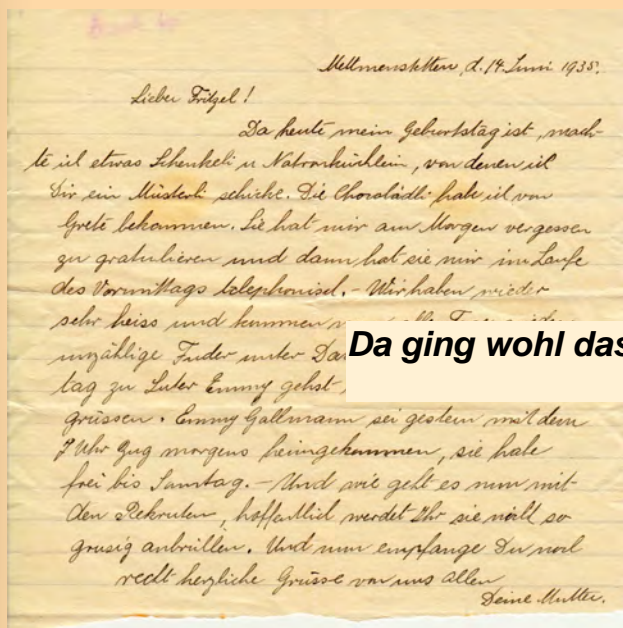 Mettmenstetten, d. 14. Juni 1938.
Lieber Fritzel!
Da heute mein Geburtstag ist, mach-
te ich etwas Schenkeli u Natronküchlein, von denen ich
Dir ein Müsterli schicke. Die Chocolädli habe ich von
Grete bekommen. Sie hat mir am Morgen vergessen
zu gratulieren und dann hat sie mir im Laufe
des Vormittags telephonisch. - Wir haben wieder
sehr heiss und kommen
unzählige Fuder unter
Da ging wohl das
tag zu Emmy gehst,
grüssen. Emmy Gallmann sei gestern mit dem
7 Uhr Zug morgens heimgekommen, sie habe
frei bis Samstag. - Und wie geht es nun mit
den Rekruten, hoffentlich werdet Ihr sie nicht so
grusig anbrüllen. Und nun empfange Du noch
recht herzliche Grüsse von uns allen
Deine Mutter.